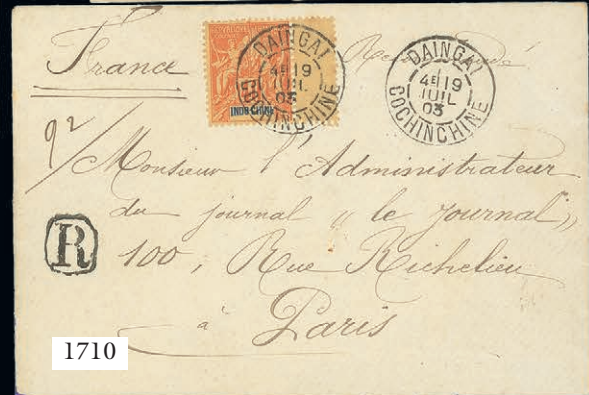 France
Recommandé
INDO-CHINE
DAINGAI
4E 19
JUIL
03
COCHINCHINE
DAINGAI
4E 19
JUIL
03
COCHINCHINE
92
Monsieur l'Administrateur
du journal " le Journal "
R
100, Rue Richelieu
à Paris
1710